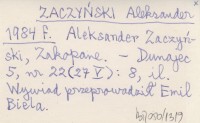 ZACZYŃSKI Aleksander
1984 f. Aleksander Zaczyń-
ski, Zakopane. – Dunajec
5, nr 22 (27 V): 8, il.
Wywiad przeprowadził Emil
Biela.